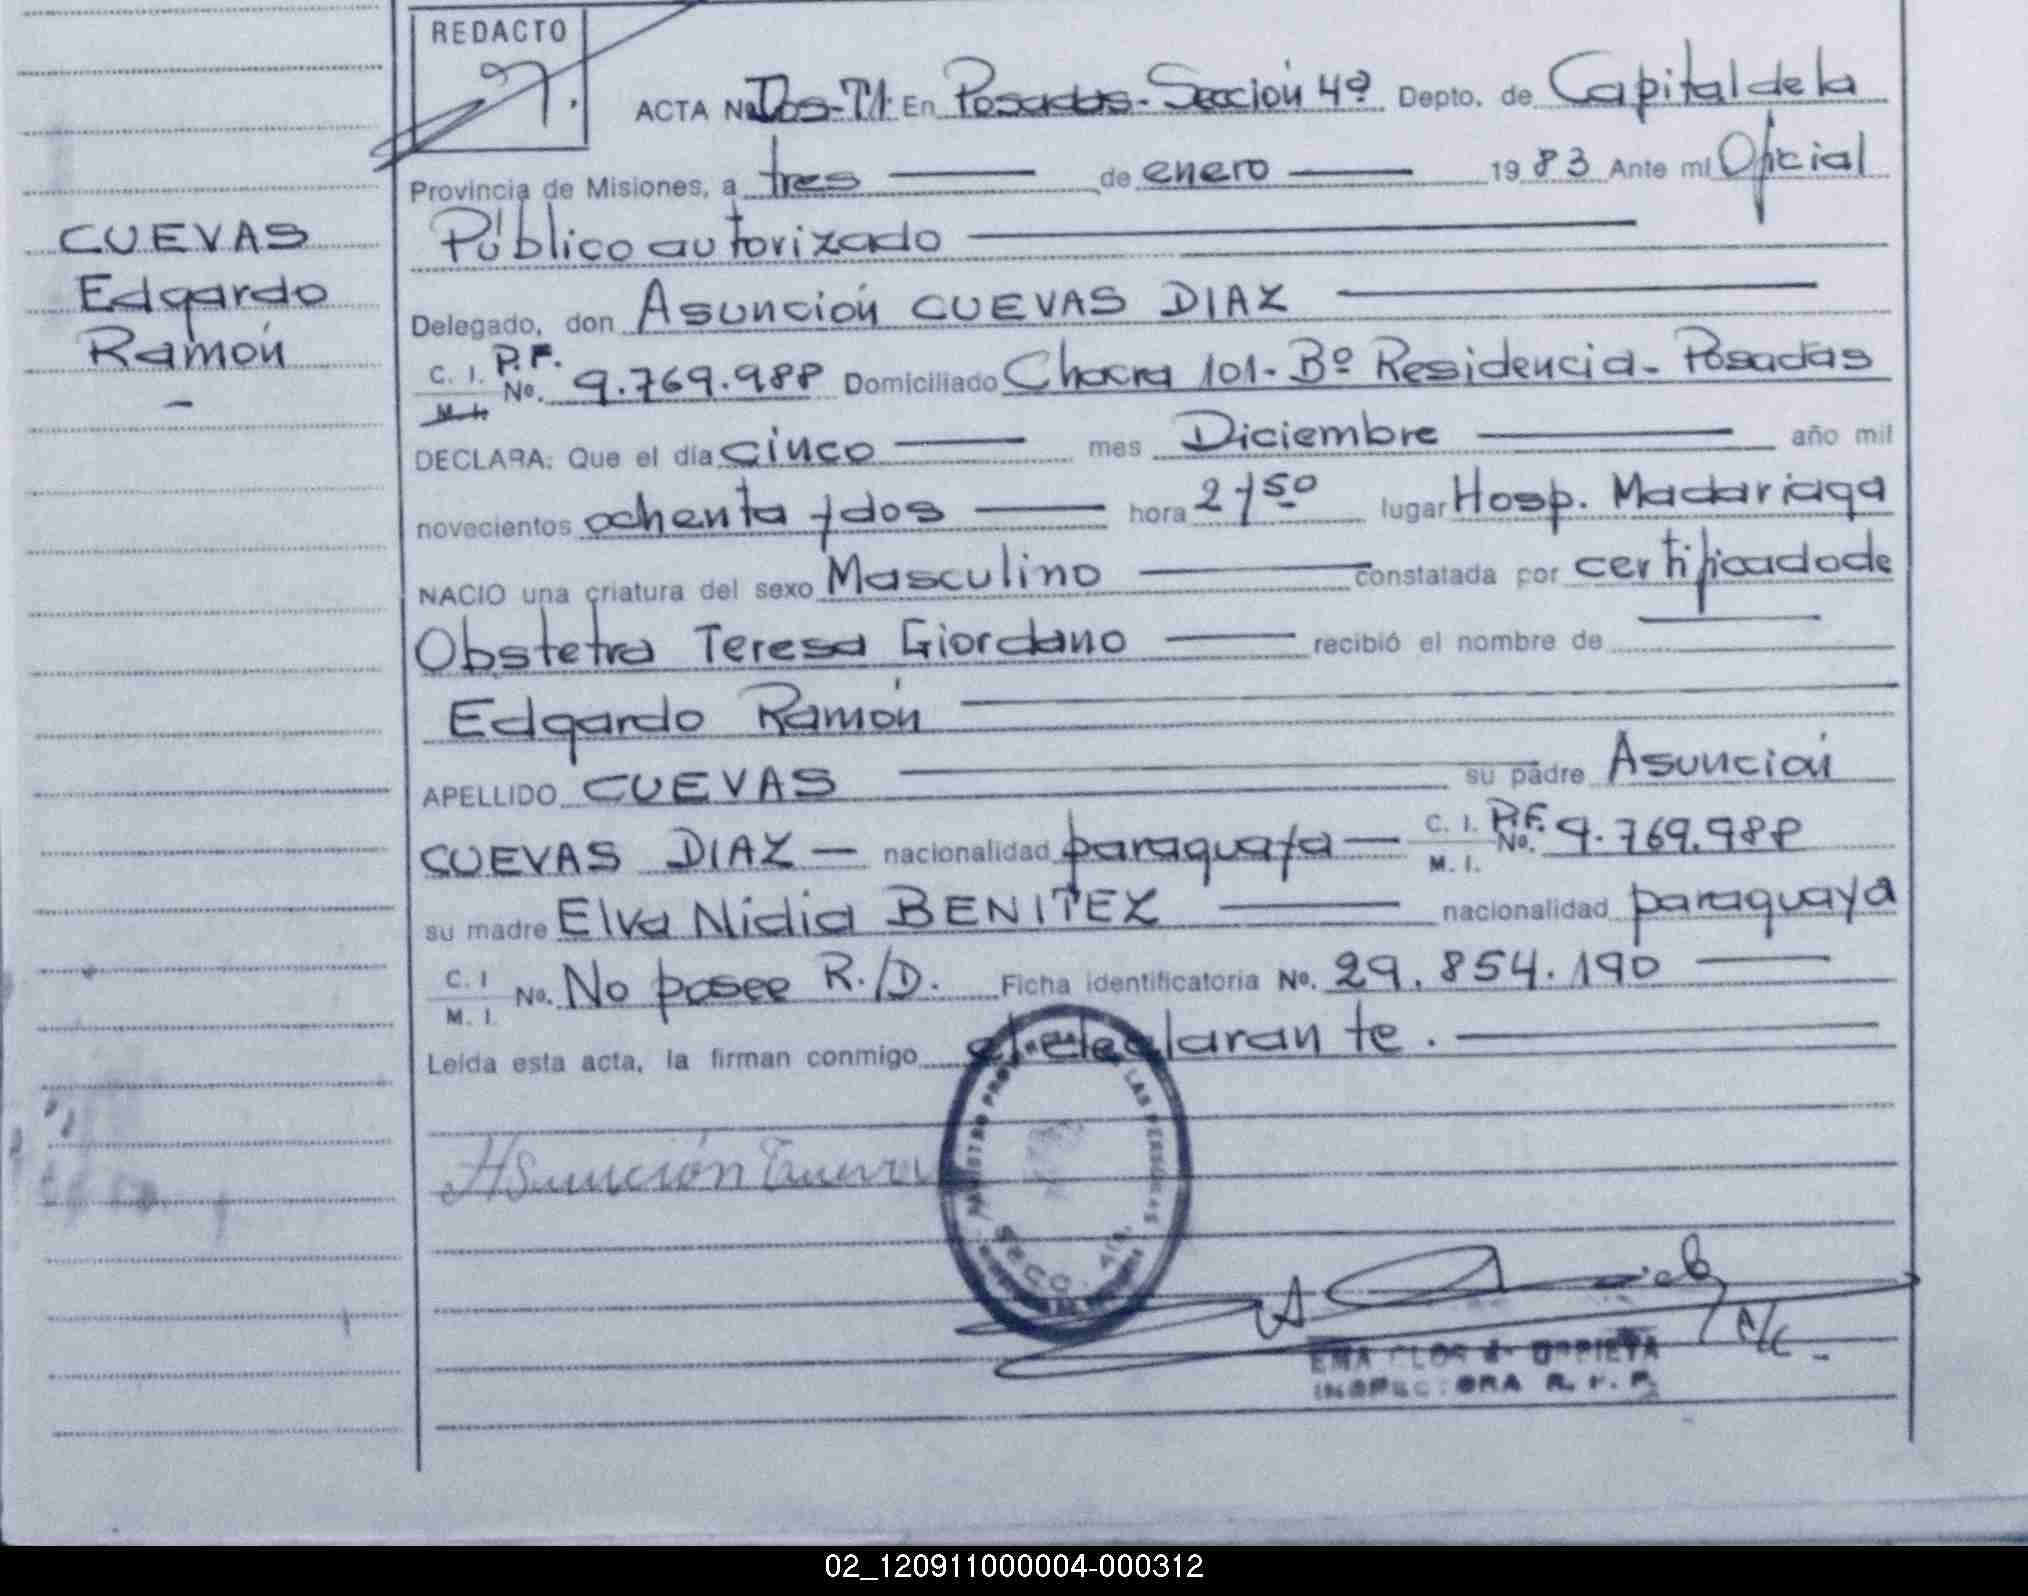 REDACTO
ACTA No Dos-T1. En Posadas-Sección 4ª Depto. de Capital de la
Provincia de Misiones, a tres de enero 1983 Ante mí Oficial
Público autorizado
CUEVAS
Edgardo
Ramón
-
Delegado, don Asunción CUEVAS DIAZ
C. I. P.F. M. I. No. 9.769.988 Domiciliado Chacra 101-Bº Residencia-Posadas
DECLARA: Que el día cinco mes Diciembre año mil
novecientos ochenta y dos hora 21 50 lugar Hosp. Madariaga
NACIO una criatura del sexo Masculino constatada por certificado de
Obstetra Teresa Giordano recibió el nombre de
Edgardo Ramón
APELLIDO CUEVAS su padre Asunción
CUEVAS DIAZ - nacionalidad paraguaya - C. I. P.F. M. I. No. 9.769.988
su madre Elva Nidia BENITEZ nacionalidad paraguaya
C. I M. I. No. No posee R./D. Ficha identificatoria No. 29.854.190
Leída esta acta, la firman conmigo el declarante.
Asunción
LAS PERSONAS
SECC. 4ta.
INSPECTORA R. P. P.
02_120911000004-000312